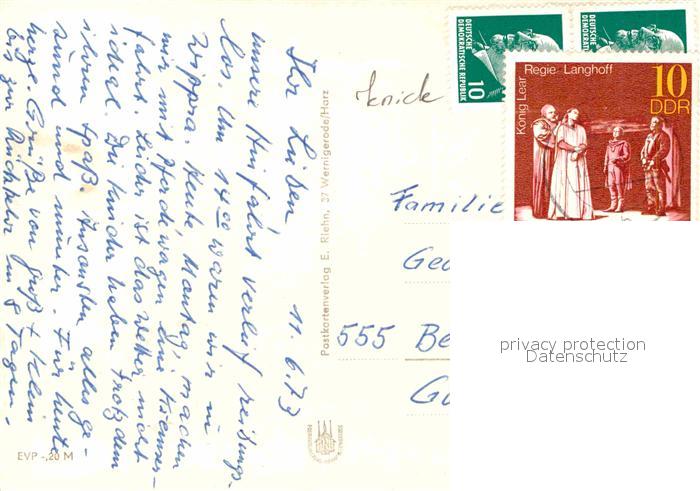 Ihr Lieben 11.6.73
unsere Hinfahrt verlief reibungs-
los. Um 14⁰⁰ waren wir in
Wippra. Heute Montag, machen
wir mit Pferdewagen eine Kremser-
fahrt. Leider ist das Wetter nicht
ideal. Die Kinder haben trotzdem
ihren Spaß. Ansonsten alles ge-
sund und munter. Für heute
herzl. Grüße von groß + klein
bis zur Rückkehr in 8 Tagen.
EVP -,20 M
Postkartenverlag E. Riehn, 37 Wernigerode/Harz
knick
DEUTSCHE
DEMOKRATISCHE REPUBLIK
10
DEUTSCHE
DEMOKRATISCHE REPUBLIK
König Lear
Regie: Langhoff
10
DDR
Familie
555 Be
privacy protection
Datenschutz